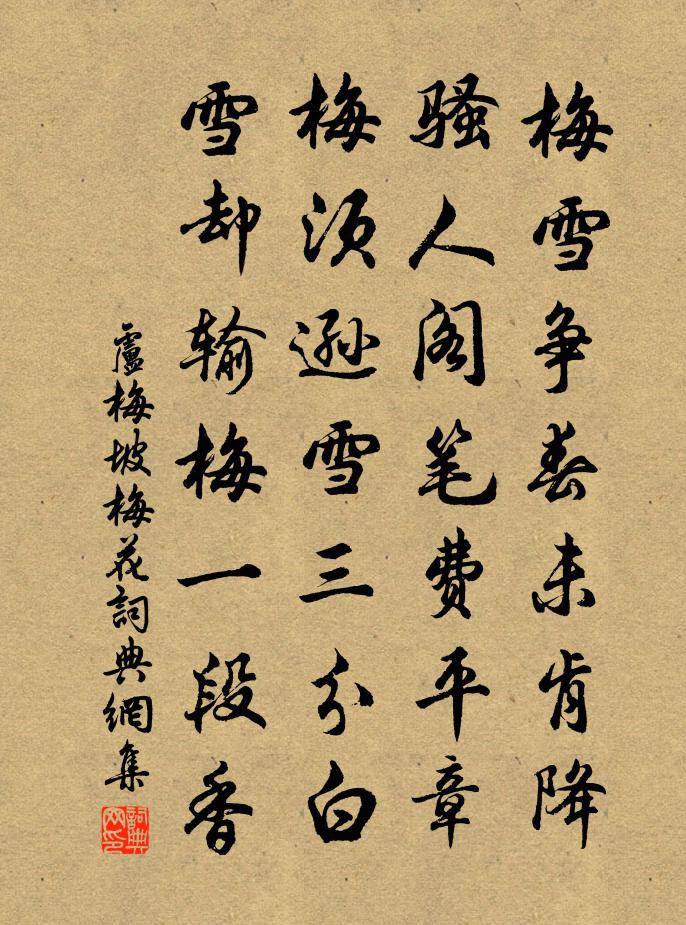 梅雪争春未肯降
骚人阁笔费平章
梅须逊雪三分白
雪却输梅一段香
盧梅坡梅花詞典網集
詞典网印